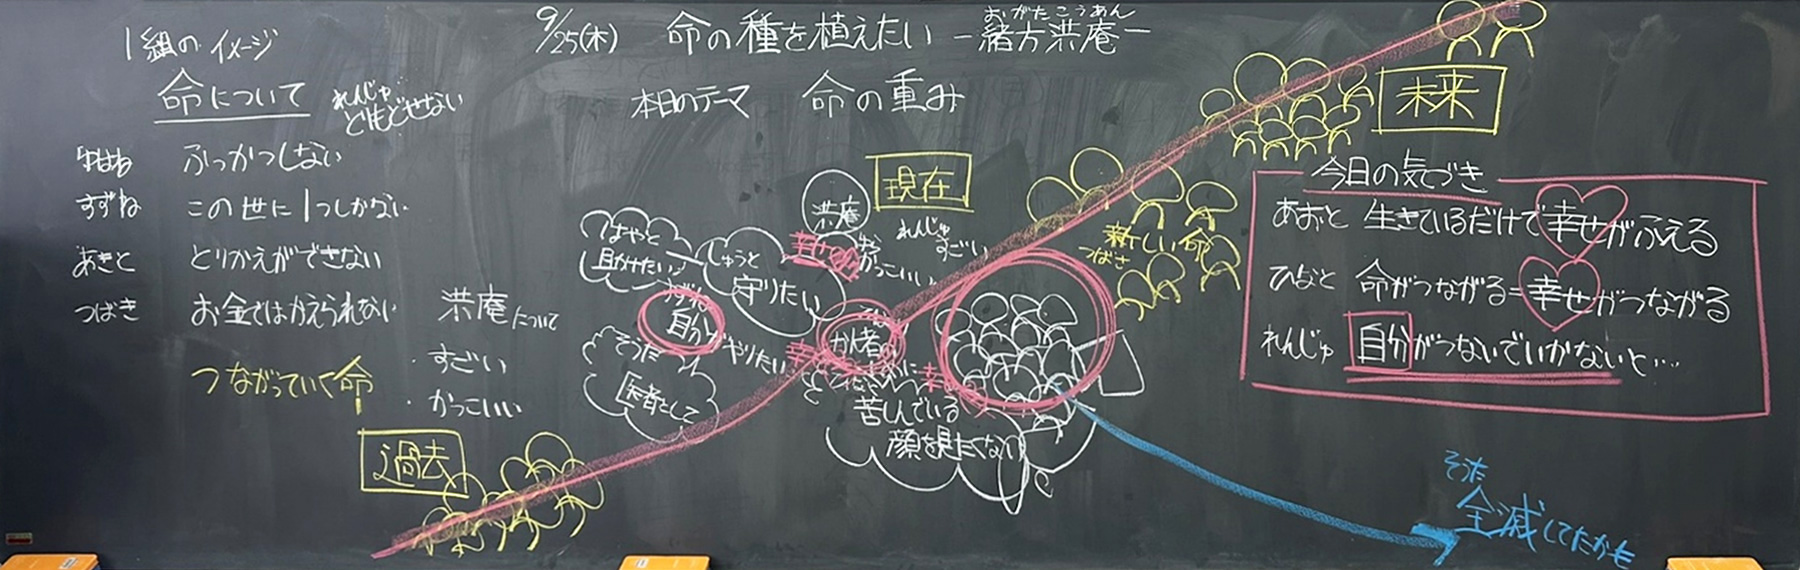 9/25(木) 命の種を植えたい －緒方洪庵－
おがたこうあん
本日のテーマ 命の重み
1組の イメージ
命について
れんじゅ
とりもどせない
ゆはね ふっかつしない
すずね この世に1つしかない
あきと とりかえができない
つばき お金ではかえられない
つながっていく命
洪庵について
・すごい
・かっこいい
過去
はやと
助けたい
しゅうと
守りたい
自分がやりたい
そうた
医者として
洪庵
現在
れんじゅ
すごい
かっこいい
かん者
苦しんでいる
顔を見たくない
新しい命
つばさ
未来
今日の気づき
あおと 生きているだけで幸せがふえる
ひなと 命がつながる=幸せがつながる
れんじゅ 自分がつないでいかないと…
そうた
全滅してたかも